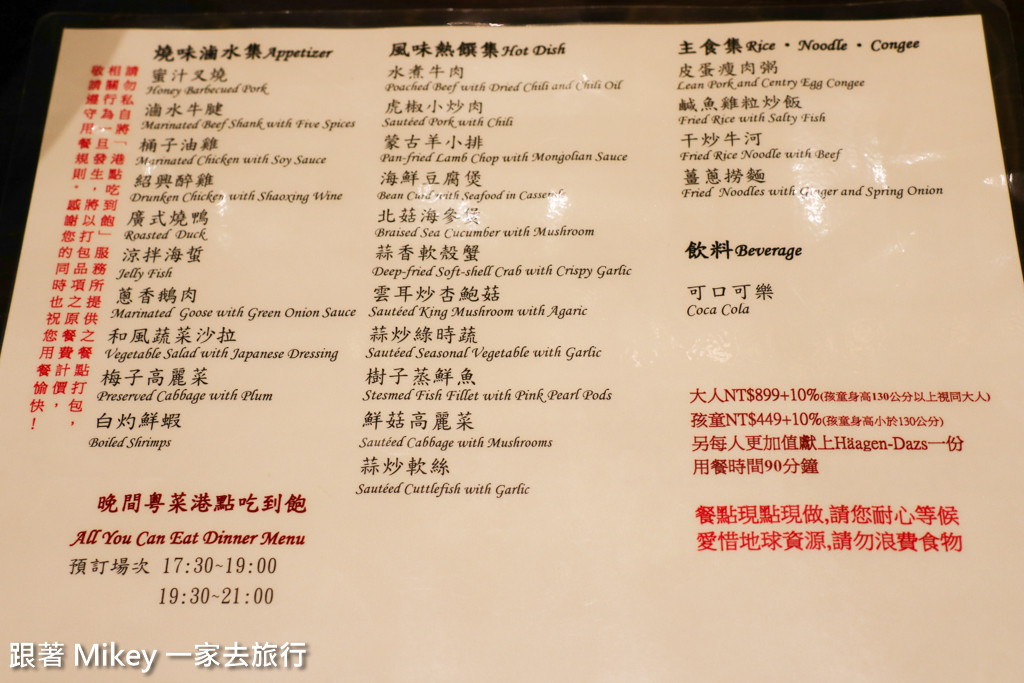 請勿私自將「港點吃到飽」服務所提供之餐點打包，
相關行為一旦發生，將以打包品項之原餐費計價，
敬請遵守用餐規則。感謝您的同時也祝您用餐愉快！
燒味滷水集Appetizer
蜜汁叉燒
Honey Barbecued Pork
滷水牛腱
Marinated Beef Shank with Five Spices
桶子油雞
Marinated Chicken with Soy Sauce
紹興醉雞
Drunken Chicken with Shaoxing Wine
廣式燒鴨
Roasted Duck
涼拌海蜇
Jelly Fish
蔥香鵝肉
Marinated Goose with Green Onion Sauce
和風蔬菜沙拉
Vegetable Salad with Japanese Dressing
梅子高麗菜
Preserved Cabbage with Plum
白灼鮮蝦
Boiled Shrimps
晚間粵菜港點吃到飽
All You Can Eat Dinner Menu
預訂場次 17:30~19:00
19:30~21:00
風味熱饌集Hot Dish
水煮牛肉
Poached Beef with Dried Chili and Chili Oil
虎椒小炒肉
Sautéed Pork with Chili
蒙古羊小排
Pan-fried Lamb Chop with Mongolian Sauce
海鮮豆腐煲
Bean Curd with Seafood in Casserole
北菇海參煲
Braised Sea Cucumber with Mushroom
蒜香軟殼蟹
Deep-fried Soft-shell Crab with Crispy Garlic
雲耳炒杏鮑菇
Sautéed King Mushroom with Agaric
蒜炒綠時蔬
Sautéed Seasonal Vegetable with Garlic
樹子蒸鮮魚
Stesmed Fish Fillet with Pink Pearl Pods
鮮菇高麗菜
Sautéed Cabbage with Mushrooms
蒜炒軟絲
Sautéed Cuttlefish with Garlic
主食集Rice・Noodle・Congee
皮蛋瘦肉粥
Lean Pork and Centry Egg Congee
鹹魚雞粒炒飯
Fried Rice with Salty Fish
干炒牛河
Fried Rice Noodle with Beef
薑蔥撈麵
Fried Noodles with Ginger and Spring Onion
飲料Beverage
可口可樂
Coca Cola
大人NT$899+10%(孩童身高130公分以上視同大人)
孩童NT$449+10%(孩童身高小於130公分)
另每人更加值獻上Häagen-Dazs一份
用餐時間90分鐘
餐點現點現做,請您耐心等候
愛惜地球資源,請勿浪費食物
跟著 Mikey 一家去旅行